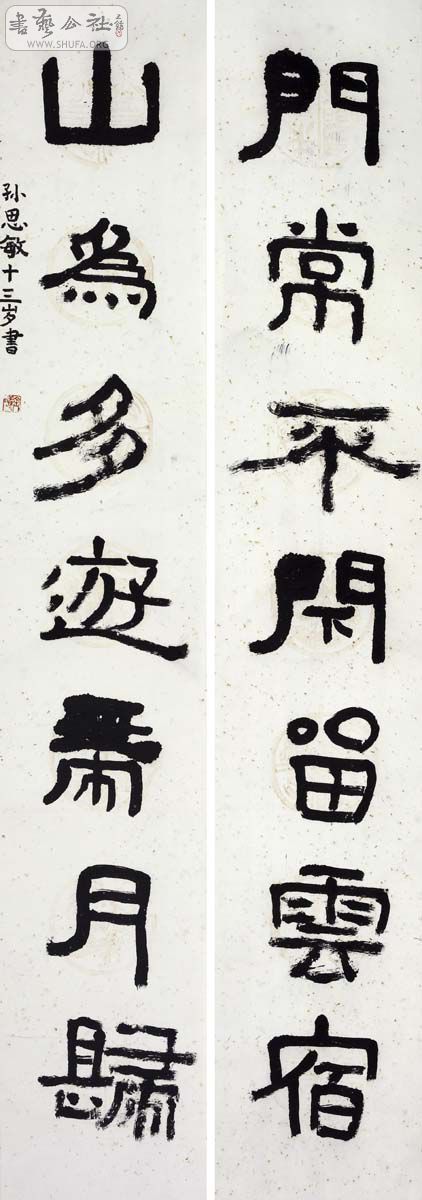 門常不閉留雲宿
山為多遊帶月歸
孙思敏十三岁書
書藝公社
WWW.SHUFA.ORG